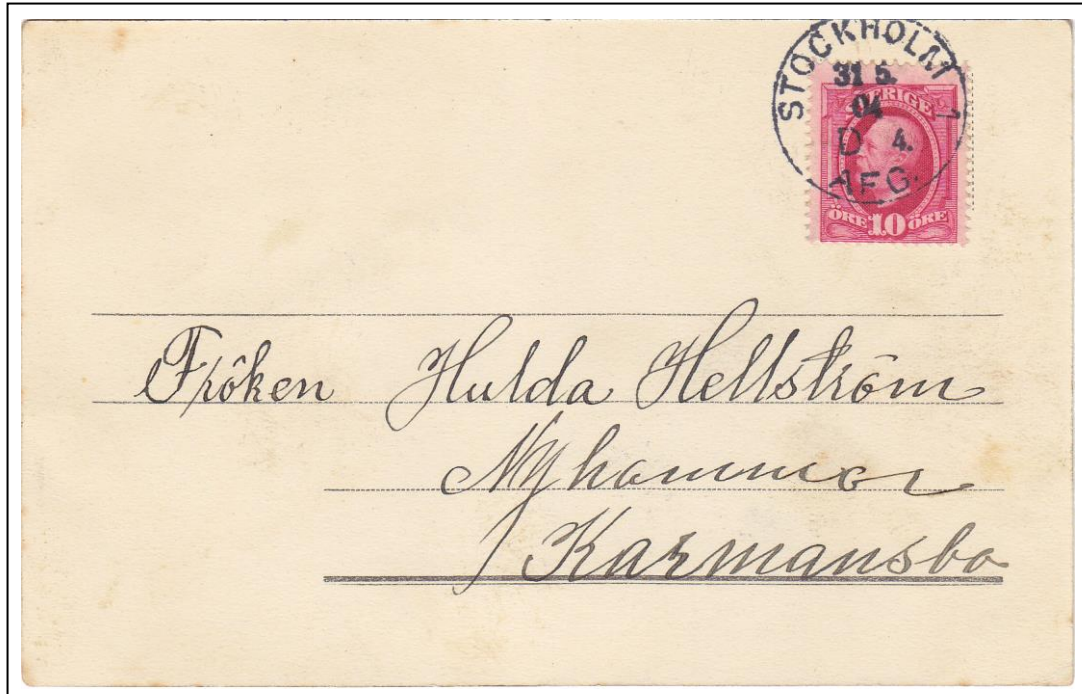 STOCKHOLM 1
31 5.
04
D 4.
AFG.
SVERIGE
ÖRE 10 ÖRE
Fröken Hulda Hellström
Nyhammar
Karmansbo